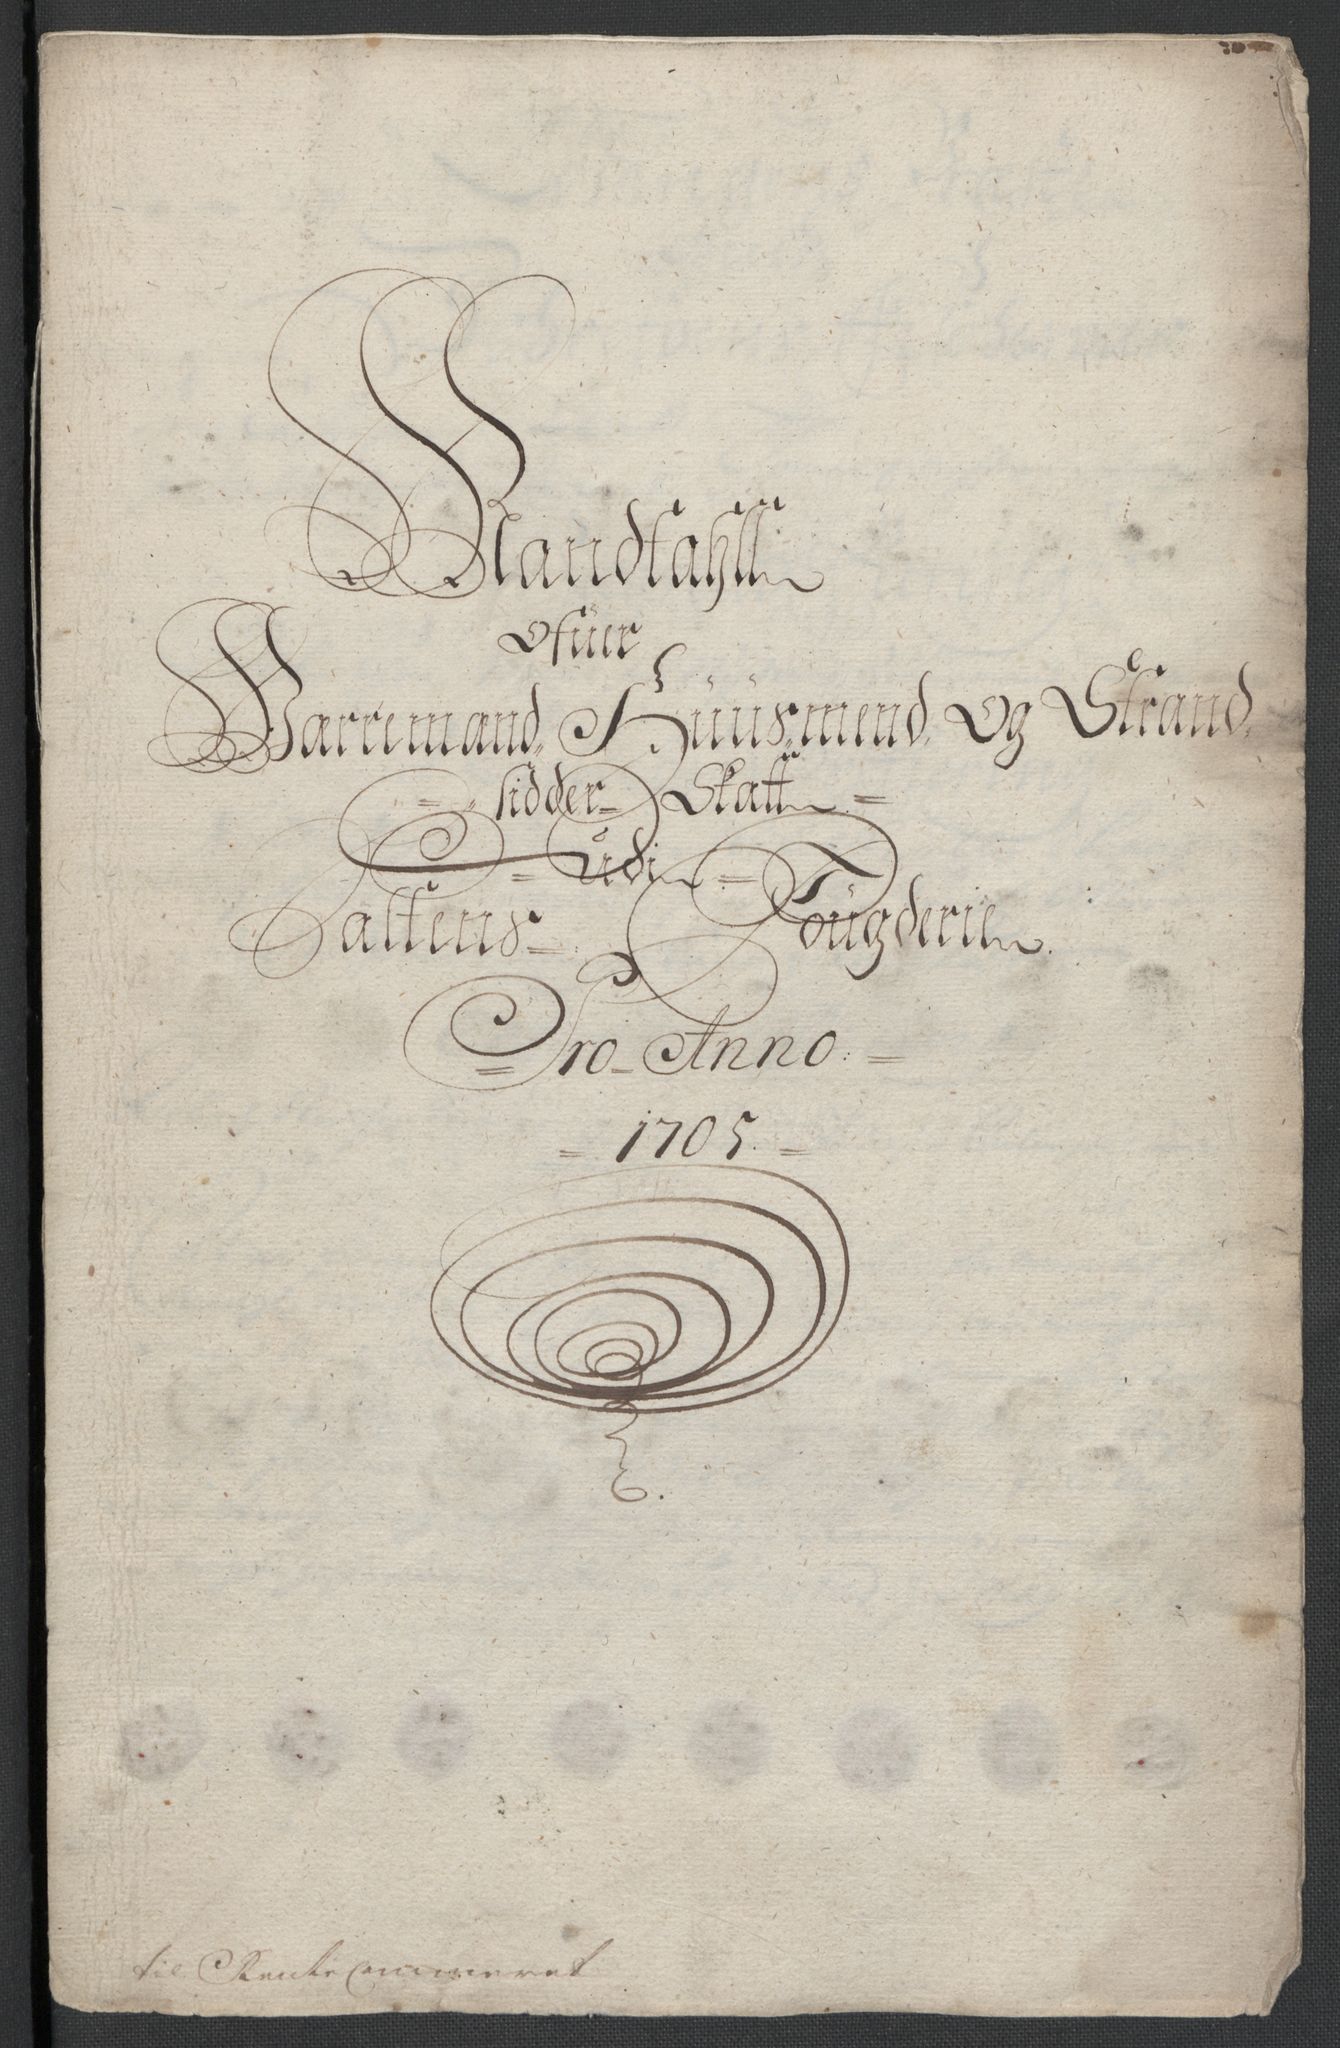 Mandtahll
Ofuer
Warremand, Huus,mend, Og Strand,
sidder Skatt
Udi
Saltens Fougderie
Pro Anno
1705.
til Rentecammeret